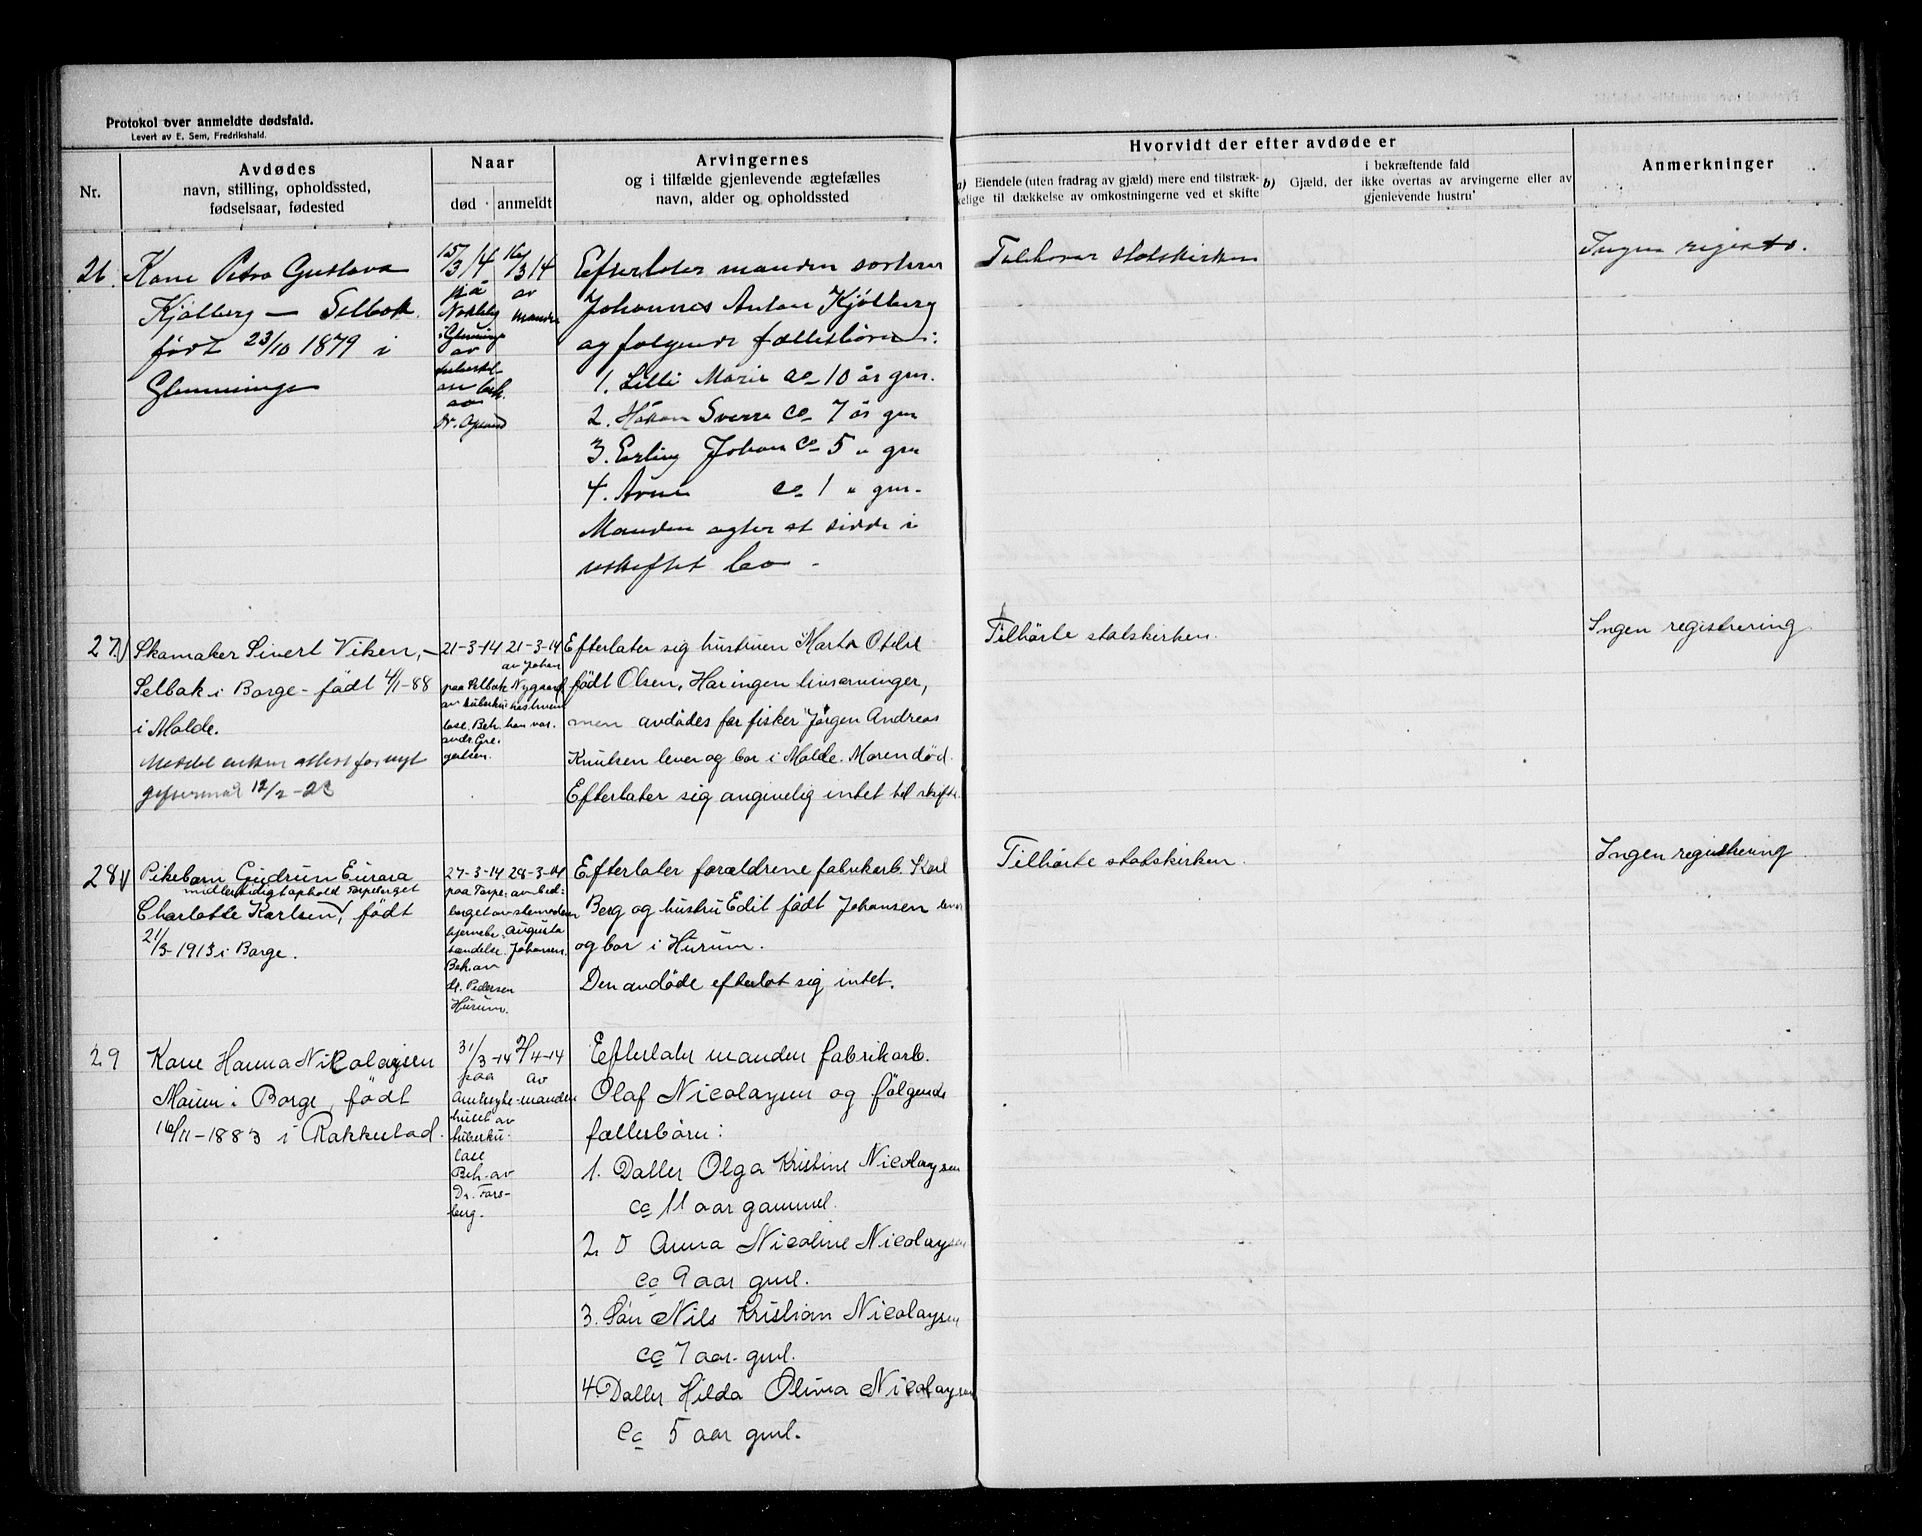 Protokol over anmeldte dødsfald.
Levert av E. Sem, Fredrikshald.
Nr.
Avdødes
navn, stilling, opholdssted,
fødselsaar, fødested
Naar
død
anmeldt
Arvingernes
og i tilfælde gjenlevende ægtefælles
navn, alder og opholdssted
Hvorvidt der efter avdøde er
a) Eiendele (uten fradrag av gjæld) mere end tilstræk-
kelige til dækkelse av omkostningerne ved et skifte
i bekræftende fald
b) Gjæld, der ikke overtas av arvingerne eller av
gjenlevende hustru
Anmerkninger
26.
Kone Petra Gustava
Kjölberg — Selbak.
født 23/10 1879 i
Glemminge
15/3 14
på
i Glemminge
av
beh.
av
16/3 14
av
manden
Efterlater manden
Johannes Anton Kjölberg
og følgende fællesbörn:
1. Lilli Marie ca 10 år gm.
2. Håkon Sverre ca 7 år gm
3. Erling Johan ca 5 " gm
4. Arne ca 1 " gm.
Manden agter at sidde i
uskiftet bo -
statskirken
Ingen registr.
27.
Skomaker Sivert Viken, -
Selbak i Borge - født 4/1-88
i Molde.
Meddel enken attest for nyt
12/2-23
21-3-14
paa Selbak
av tuberku-
lose. Beh.
andr. Gre-
gersen.
21-3-14
av Johan
Nygaard
hustruen
han var.
Efterlater sig hustruen Marta Otilie
født Olsen. Har ingen livsarvinger,
men avdødes far fisker Jørgen Andreas
Knutsen lever og bor i Molde. Moren død.
Efterlater sig angivelig intet til skifte.
Tilhörte statskirken.
Ingen registrering
28
Pikebarn Gudrun
midlertidigt ophold Torpeberget
Charlotte Karlsen, født
21/3-1913 i Borge.
27-3-14
paa Torpe-
berget av
hjernebe-
tændelse.
Beh. av
dr. Pedersen
Hurum.
28-3-14
av bed-
stemoderen
Augusta
Johansen.
Efterlater forældrene fabrikarb. Karl
Berg og hustru Edit født Johansen lever
og bor i Hurum.
Den avdöde efterlot sig intet.
Tilhörte statskirken.
Ingen registrering
29
Kone Hanna Nicolaysen
Moum i Borge, födt
16/11-1883 i Rakkestad.
31/3-14
paa
Amtssyke-
huset av
tuberku-
lose
Beh. av
Dr. Fors-
berg.
2/4-14
av
manden
Efterlater manden fabrikarb.
Olaf Nicolaysen og fölgende
fællesbörn:
1. Datter Olga Kristine Nicolaysen
ca 11 aar gammel.
2. D Anna Nicoline Nicolaysen
ca 9 aar gml.
3. Sön Nils Kristian Nicolaysen
ca 7 aar gml.
4 Datter Hilda Olivia Nicolaysen
ca 5 aar gml.